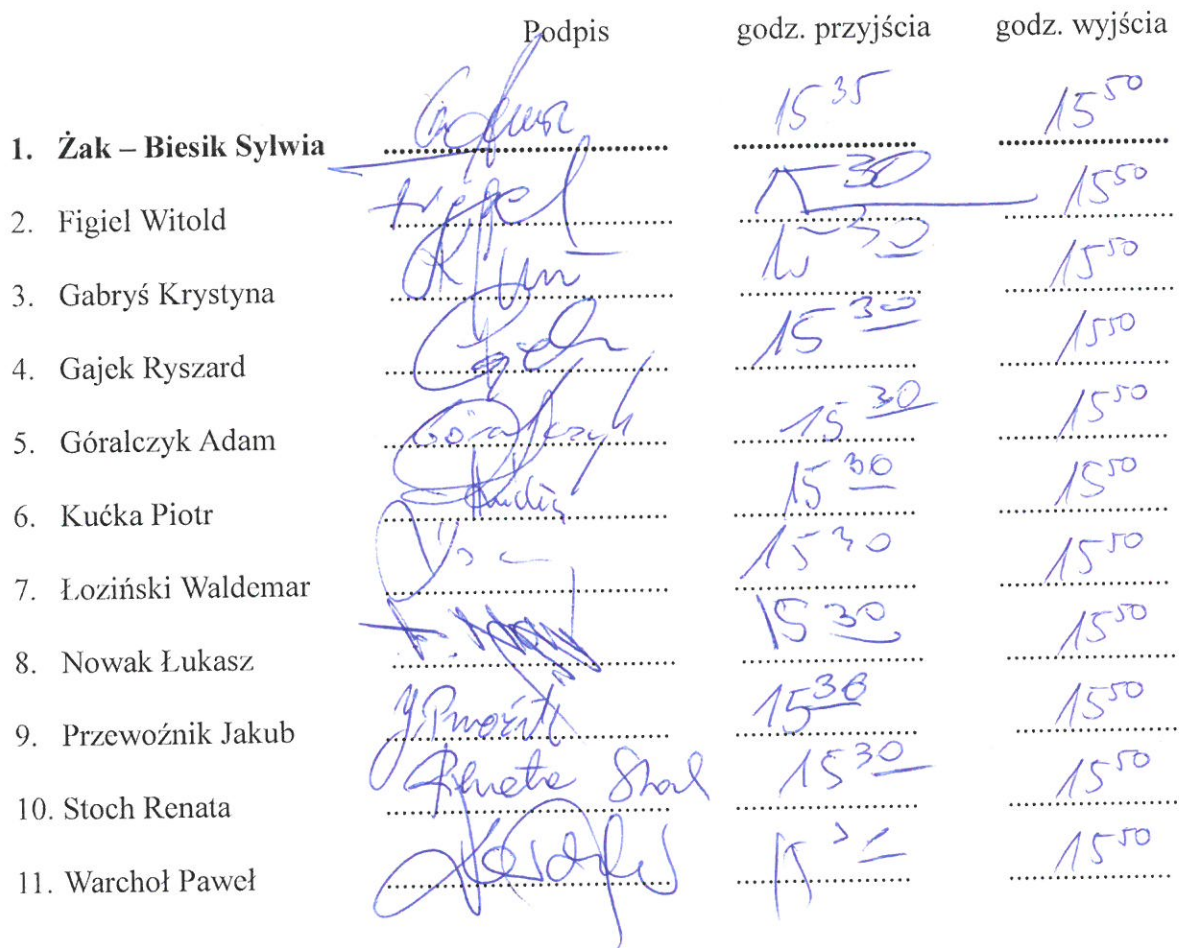 Podpis godz. przyjścia godz. wyjścia
1. Żak – Biesik Sylwia 15 35 15 50
2. Figiel Witold Figiel 15 30 15 50
3. Gabryś Krystyna 15 30 15 50
4. Gajek Ryszard 15 30 15 50
5. Góralczyk Adam Góralczyk 15 30 15 50
6. Kućka Piotr 15 30 15 50
7. Łoziński Waldemar 15 30 15 50
8. Nowak Łukasz 15 30 15 50
9. Przewoźnik Jakub 15 30 15 50
10. Stoch Renata Renata Stoch 15 30 15 50
11. Warchoł Paweł 15 50